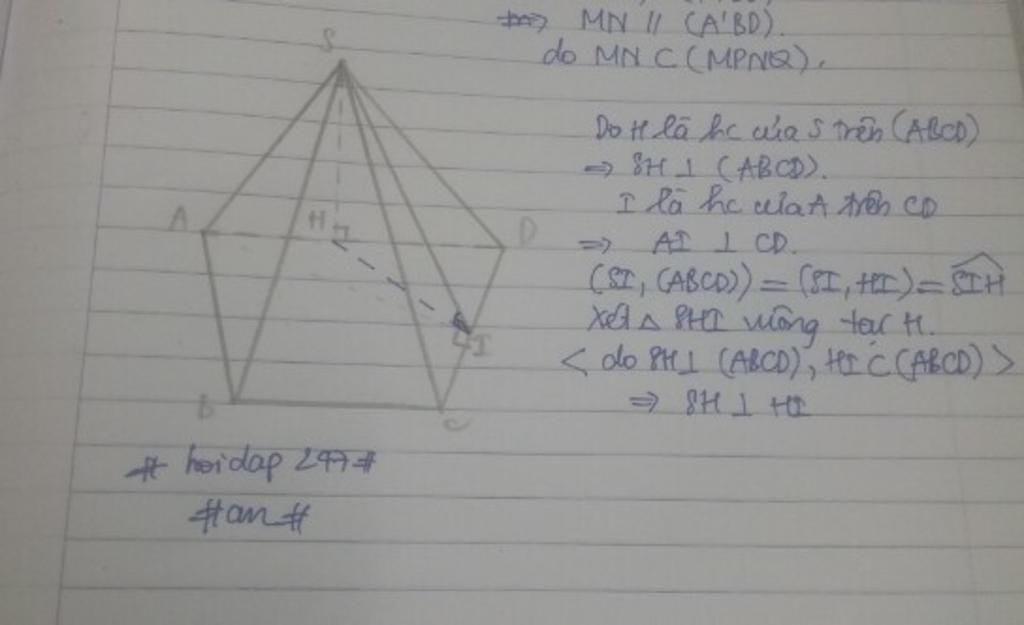 => MN // (A'BD).
do MN ⊂ (MPNQ).
S
A
H
D
I
B
C
Do H là hc của S trên (ABCD)
=> SH ⊥ (ABCD).
I là hc của A trên CD
=> AI ⊥ CD.
(SI, (ABCD)) = (SI, HI) = \widehat{SIH}
Xét △ SHI vuông tại H.
< do SH ⊥ (ABCD), HI ⊂ (ABCD) >
=> SH ⊥ HI
# hoidap 247 #
# an #